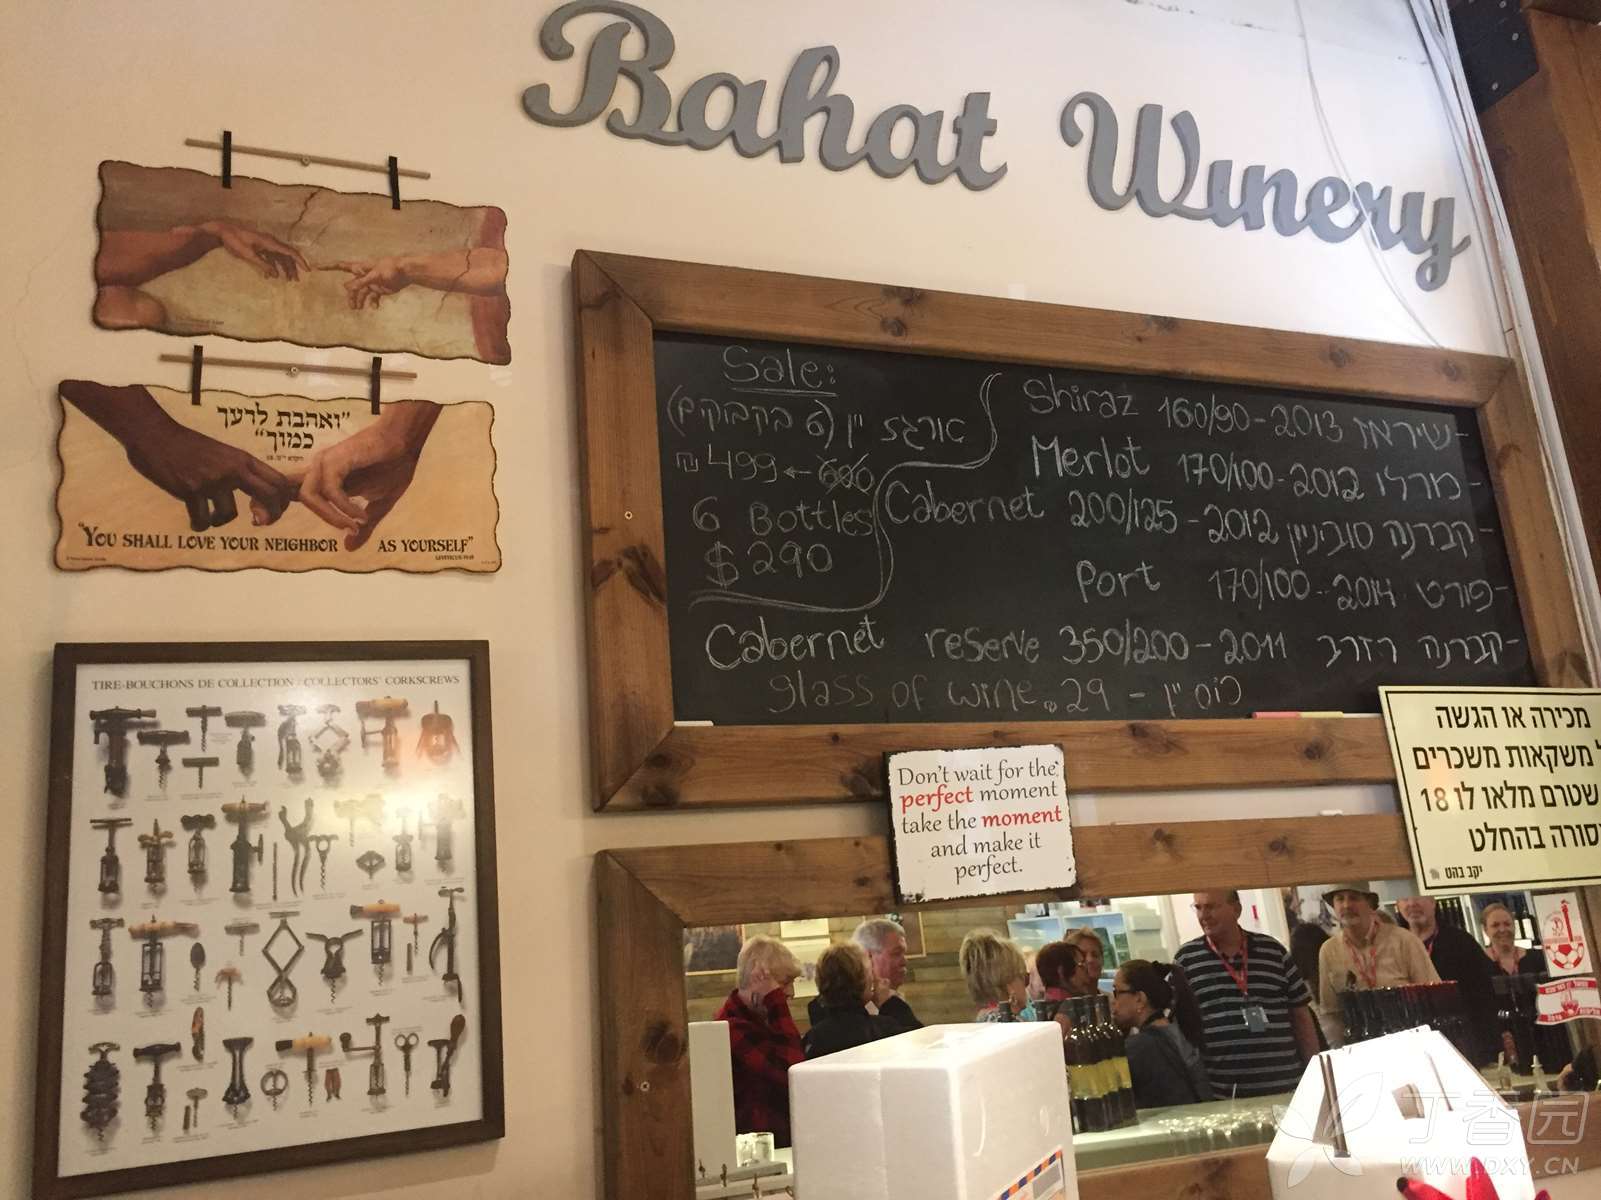 Bahat Winery
"ואהבת לרעך
כמוך"
"YOU SHALL LOVE YOUR NEIGHBOR AS YOURSELF"
LEVITICUS 19:18
TIRE-BOUCHONS DE COLLECTION / COLLECTORS' CORKSCREWS
Sale:
ארגז יין (6 בקבוקים)
₪ 499 ← 600
6 Bottles
$290
Shiraz 160/90-2013 שיראז-
Merlot 170/100-2012 מרלו-
Cabernet 200/125-2012 קברנה סוביניין-
Port 170/100-2014 פורט-
Cabernet reserve 350/200-2011 קברנה רזרב-
glass of wine 29 - כוס יין
Don't wait for the
perfect moment
take the moment
and make it
perfect.
מכירה או הגשה
משקאות משכרים
שטרם מלאו לו 18
בהחלט
יקב בהט
丁香园
WWW.DXY.CN